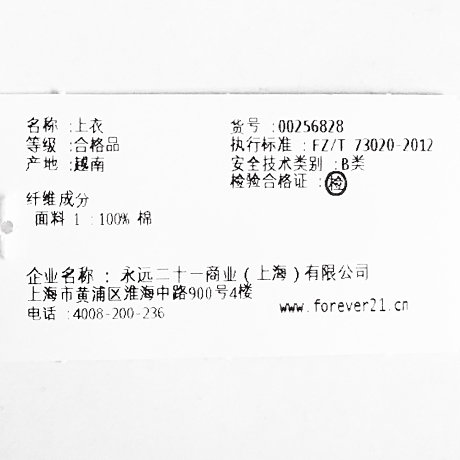 名称 :上衣
等级 :合格品
产地 :越南
货号 :00256828
执行标准 :FZ/T 73020-2012
安全技术类别 :B类
检验合格证 :检
纤维成分
面料 1 :100% 棉
企业名称 : 永远二十一商业(上海)有限公司
上海市黄浦区淮海中路900号4楼
电话 :4008-200-236
www.forever21.cn